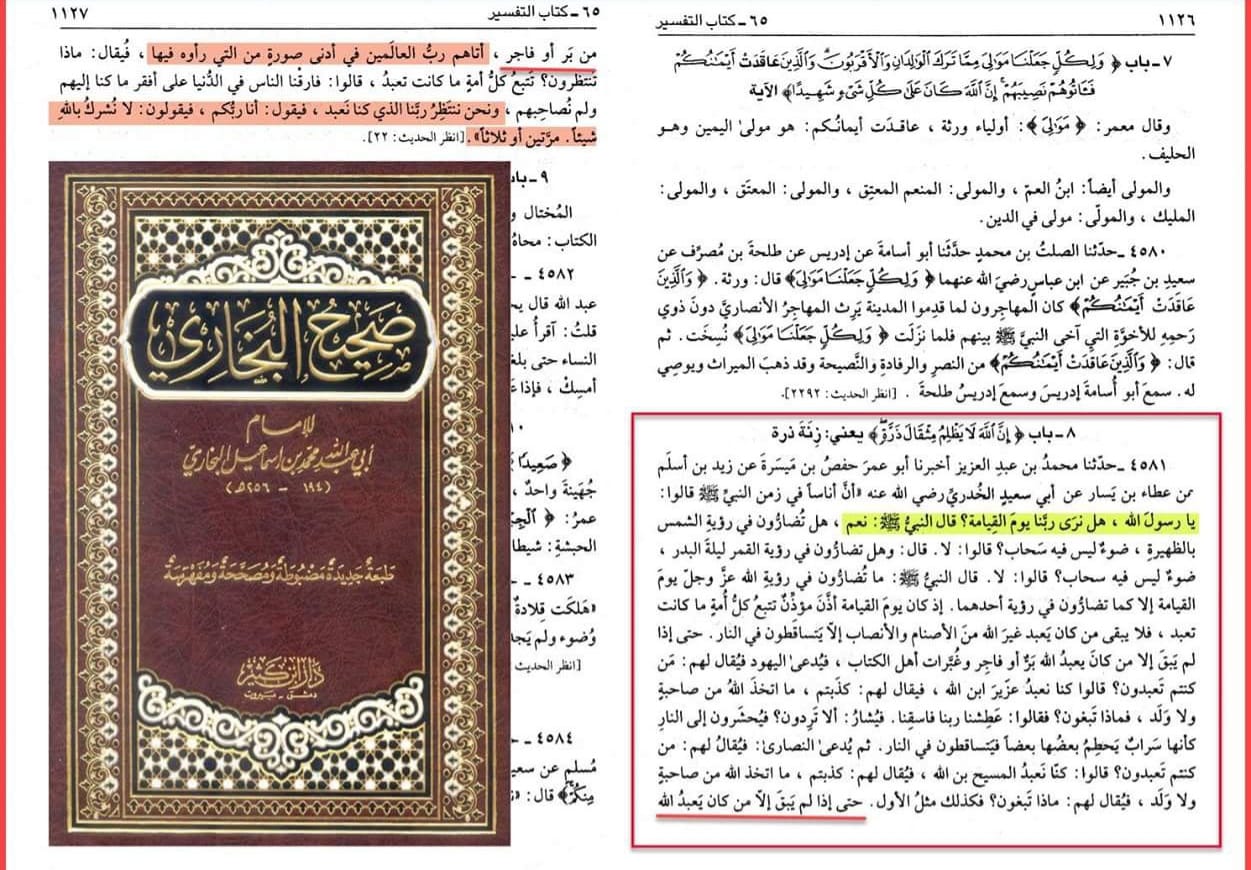 ١١٢٦
٦٥ - كتاب التفسير
٧ - باب ﴿ وَلِكُلٍّ جَعَلْنَا مَوَالِيَ مِمَّا تَرَكَ الْوَالِدَانِ وَالْأَقْرَبُونَ وَالَّذِينَ عَاقَدَتْ أَيْمَانُكُمْ
فَآتُوهُمْ نَصِيبَهُمْ إِنَّ اللَّهَ كَانَ عَلَى كُلِّ شَيْءٍ شَهِيدًا﴾ الآية
وقال معمر: ﴿ مَوَالِيَ ﴾: أولياء ورثة ، عاقدَت أيمانُكم: هو مولىٰ اليمين وهو
الحليف .
والمولى أيضاً: ابنُ العمّ ، والمولى: المنعم المعتِق ، والمولى: المعتَق ، والمولى:
المليك ، والمولّى: مولى في الدين.
٤٥٨٠ ـ حدّثنا الصلتُ بن محمدٍ حدَّثَنا أبو أسامةَ عن إدريس عن طلحةَ بن مُصرِّف عن
سعيدِ بن جُبَير عن ابن عباسٍ رضيَ الله عنهما ﴿ وَلِكُلٍّ جَعَلْنَا مَوَالِيَ﴾ قال: ورثة . ﴿ وَالَّذِينَ
عَاقَدَتْ أَيْمَانُكُمْ﴾ كان المهاجِرون لما قدِموا المدينة يَرِث المهاجرُ الأنصاريَّ دونَ ذوي
رَحمِه للأخوَّة التي آخى النبيُّ ﷺ بينهم فلما نزَلَت ﴿ وَلِكُلٍّ جَعَلْنَا مَوَالِيَ﴾ نُسِخَت . ثم
قال: ﴿ وَالَّذِينَ عَاقَدَتْ أَيْمَانُكُمْ﴾ من النصرِ والرفادةِ والنَّصيحة وقد ذهبَ الميراث ويوصِي
له . سمعَ أبو أُسامةَ إدريسَ وسمعَ إدريسُ طلحةَ . [انظر الحديث: ٢٢٩٢].
٨ - باب ﴿ إِنَّ اللَّهَ لَا يَظْلِمُ مِثْقَالَ ذَرَّةٍ﴾ يعني: زِنَةَ ذرة
٤٥٨١ ـ حدّثنا محمدُ بن عبدِ العزيز أخبرنا أبو عمرَ حفصُ بن مَيسَرةَ عن زيدِ بن أسلَم
عن عطاء بن يَسار عن أبي سعيدٍ الخُدريِّ رضي الله عنه «أنَّ أناساً في زمن النبيِّ ﷺ قالوا:
يا رسولَ الله ، هل نرَى ربَّنا يومَ القِيامة؟ قال النبيُّ ﷺ: نعم ، هل تُضارُّون في رؤيةِ الشمس
بالظهيرةِ ، ضوءٌ ليس فيه سَحاب؟ قالوا: لا. قال: وهل تضارُّون في رؤية القمر ليلةَ البدر ،
ضوءٌ ليسَ فيه سحاب؟ قالوا: لا. قال النبيُّ ﷺ: ما تُضارُّون في رؤية الله عزَّ وجلَّ يومَ
القيامة إلا كما تضارُّون في رؤية أحدهما. إذ كان يومَ القيامة أذَّنَ مؤذِّنٌ تتبعُ كلُّ أُمةٍ ما كانت
تعبد ، فلا يبقى من كان يَعبد غيرَ الله منَ الأصنام والأنصاب إلاّ يَتساقطون في النار . حتى إذا
لم يَبقَ إلا من كانَ يعبدُ الله بَرٌّ أو فاجِر وغُبَّرات أهل الكتاب ، فيُدعىٰ اليهود فيُقال لهم: مَن
كنتم تَعبدون؟ قالوا كنا نعبدُ عزيرَ ابن الله ، فيقال لهم: كذَبتم ، ما اتخذَ اللهُ من صاحبةٍ
ولا وَلَد ، فماذا تَبغون؟ فقالوا: عَطِشْنا ربنا فاسقِنا. فيُشارُ: ألا تَرِدون؟ فيُحشَرون إلى النارِ
كأنها سَرابٌ يَحطِمُ بعضُها بعضاً فيَتساقطون في النار. ثم يُدعىٰ النصارىٰ: فيُقالُ لهم: من
كنتم تَعبدون؟ قالوا: كنّا نَعبدُ المسيح بن الله ، فيُقال لهم: كذبتم ، ما اتخذ الله من صاحبةٍ
ولا وَلَد ، فيُقال لهم: ماذا تَبغون؟ فكذلك مثلُ الأول. حتى إذا لم يَبقَ إلاّ من كان يَعبدُ الله
٦٥ - كتاب التفسير
١١٢٧
من بَر أو فاجر ، أتاهم ربُّ العالَمين في أدنى صورةٍ من التي رأوه فيها ، فيُقال: ماذا
تَنتظرون؟ تَتبعُ كلُّ أمةٍ ما كانت تعبدُ ، قالوا: فارقْنا الناس في الدُّنيا على أفقر ما كنا إليهم
ولم نُصاحِبهم ، ونحن ننتَظِرُ ربَّنا الذي كنا نَعبد ، فيقول: أنا ربُّكم ، فيقولون: لا نُشركُ باللهِ
شيئاً . مرَّتين أو ثلاثاً». [انظر الحديث: ٢٢].
٩ - باب
المُختال و
الكتاب: محاهُ
٤٥٨٢ ـ
عبد الله قال يح
قلتُ: آقرأُ علي
النساء حتى بلغ
أمسِكْ ، فإذا عَ
١٠
﴿ صَعِيدًا﴾
جُهَينة واحدٌ ،
عمرُ: ﴿ الْجِبْ
الحبشةِ: شيطا
٤٥٨٣ ـ
«هَلكَت قِلادةٌ
وُضوء ولم يَجد
[انظر الحديث
٤٥٨٤ ـ ح
مُسلمٍ عن سعي
مِنكُمْ﴾ قال: «نز
صَحِيحُ البُخَارِيّ
للإمام
أبي عبد الله محمد بن إسماعيل البخاريّ
(١٩٤ - ٢٥٦هـ)
طَبعَة جَديدَة مَضبُوطَة وَمُصَحَّحَة وَمُفَهرَسَة
دار ابن كثير
دمشق - بيروت